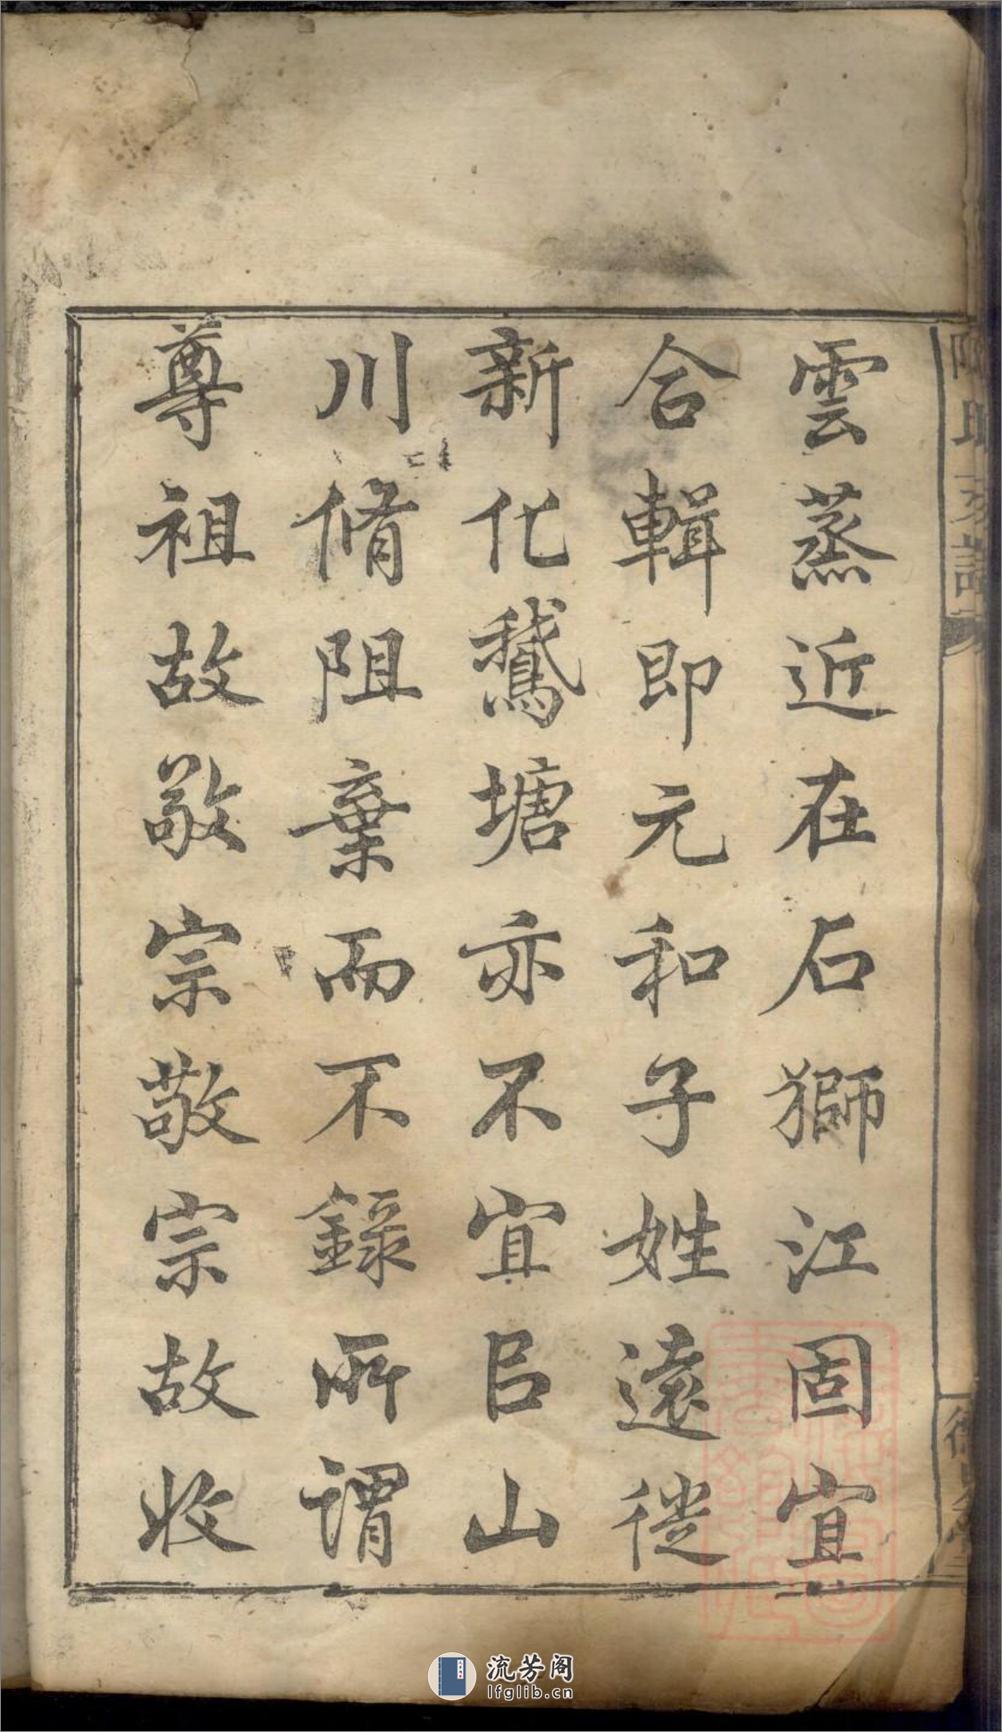 雲蒸近在石獅江固宜
合輯即元和子姓遠徙
新化鵞塘亦不宜㠯山
川脩阻棄而不錄所謂
尊祖故敬宗敬宗故收
流芳阁
lfglib.cn